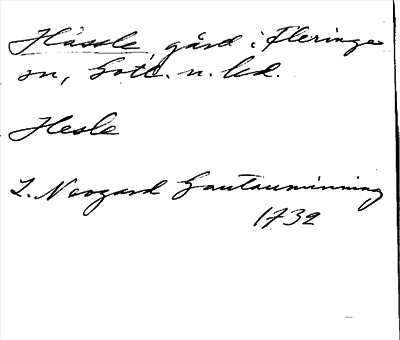 Hässle, gård i Fleringe
sn, Gotl. n. hd.
Hesle
L. Neogard Gautauminning
1732